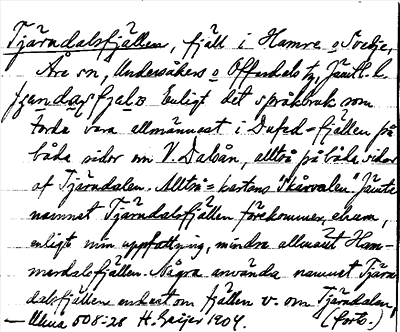 Tjärndalsfjällen, fjäll i Hamre o Svedje,
Åre sn, Undersåkers o Offerdals tg, Jämtl. l.
Enligt det språkbruk som
torde vara allmännast i Dufed-fjällen på
båda sidor om V. Dalsån, alltså på båda sidor
af Tjärndalen. Alltså = kartans "Skårvalen". Jämte
namnet Tjärndalsfjällen förekommer,
enligt min uppfattning, mindre allmänt Ham-
merdalsfjällen. Några använda namnet Tjärn-
dalsfjällen enbart om fjällen v. om Tjärndalen,
508:28 H. Geijer 1904. (Forts.)